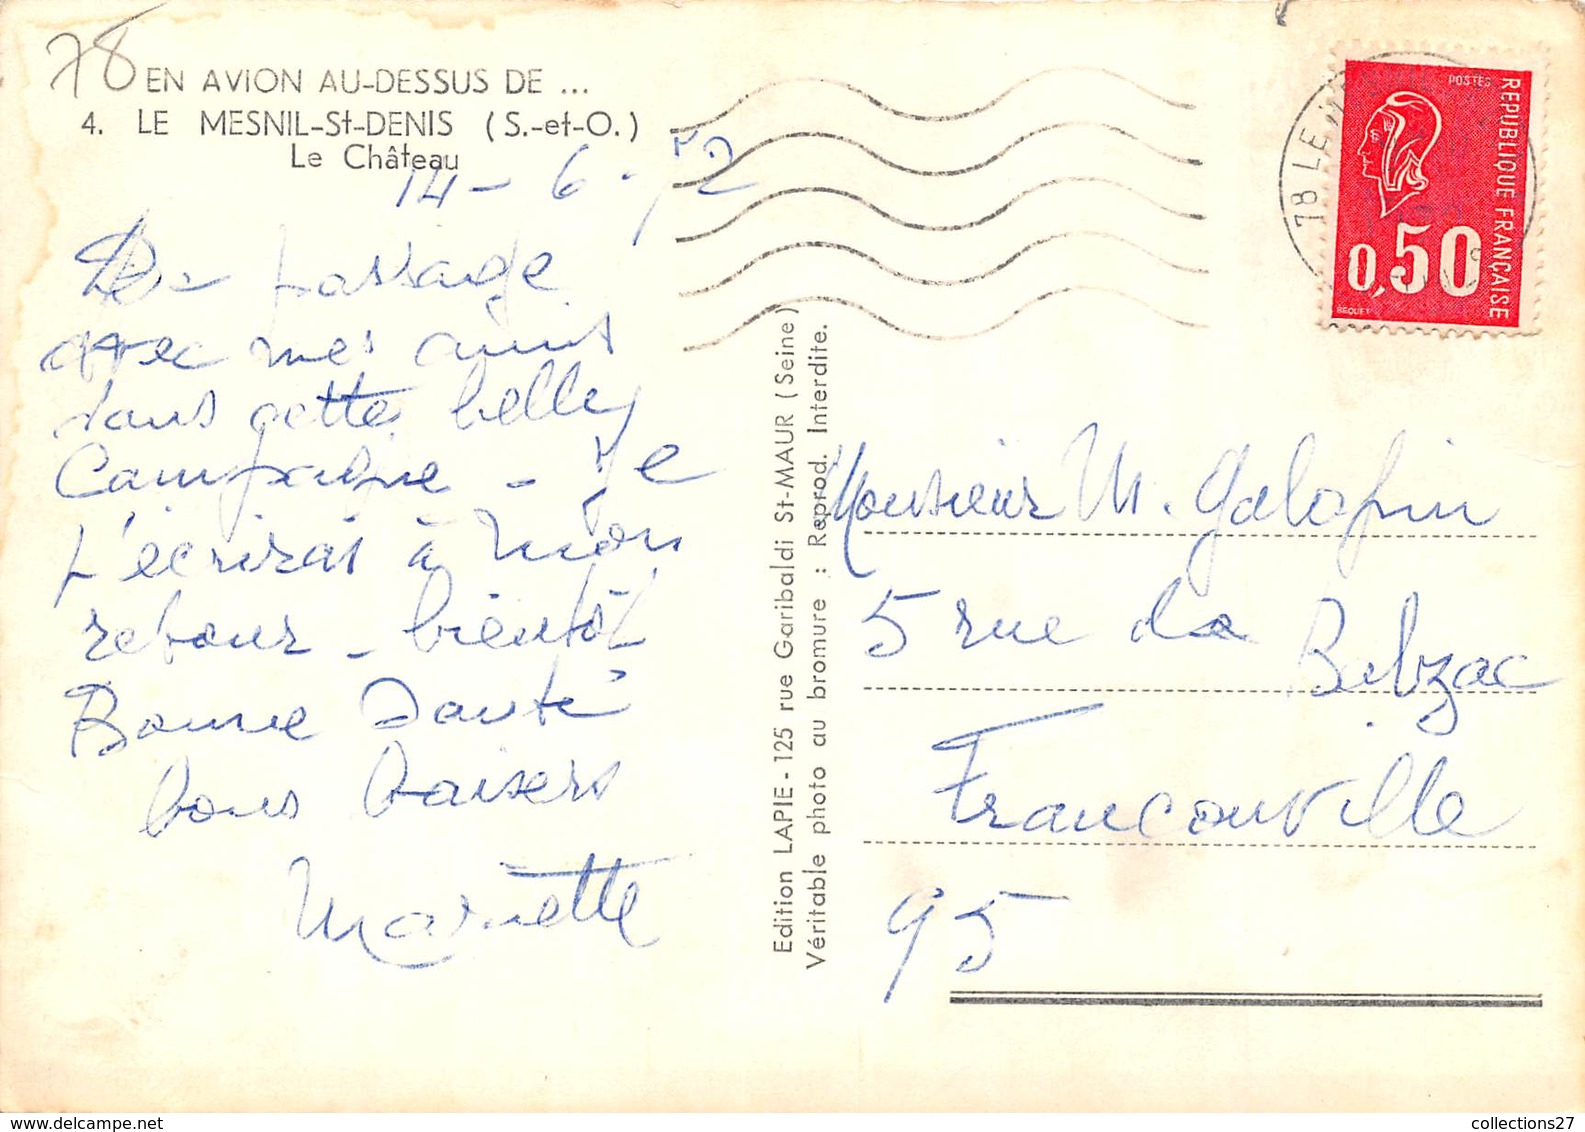 78
EN AVION AU-DESSUS DE ...
4. LE MESNIL-St-DENIS (S.-et-O.)
Le Château
14 - 6 - 72
De passage
avec mes amis
dans cette belle
Campagne - je
t'écrirai à mon
retour - bientôt
Bonne Santé
bons baisers
Mariette
Edition LAPIE - 125 rue Garibaldi St-MAUR (Seine)
Véritable photo au bromure : Reprod. Interdite.
78 LE
POSTES
REPUBLIQUE FRANÇAISE
0,50
BEQUET
Monsieur M. Galopin
5 rue de Balzac
Franconville
95
collections27